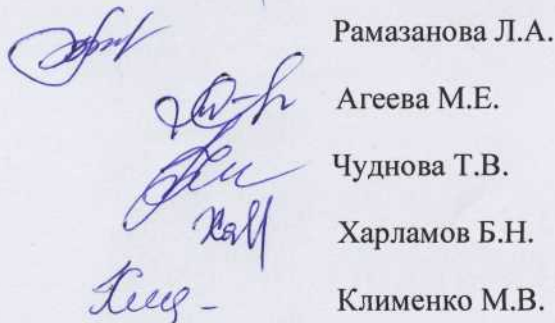 Рамазанова Л.А.
Агеева М.Е.
Чуднова Т.В.
Харламов Б.Н.
Клименко М.В.